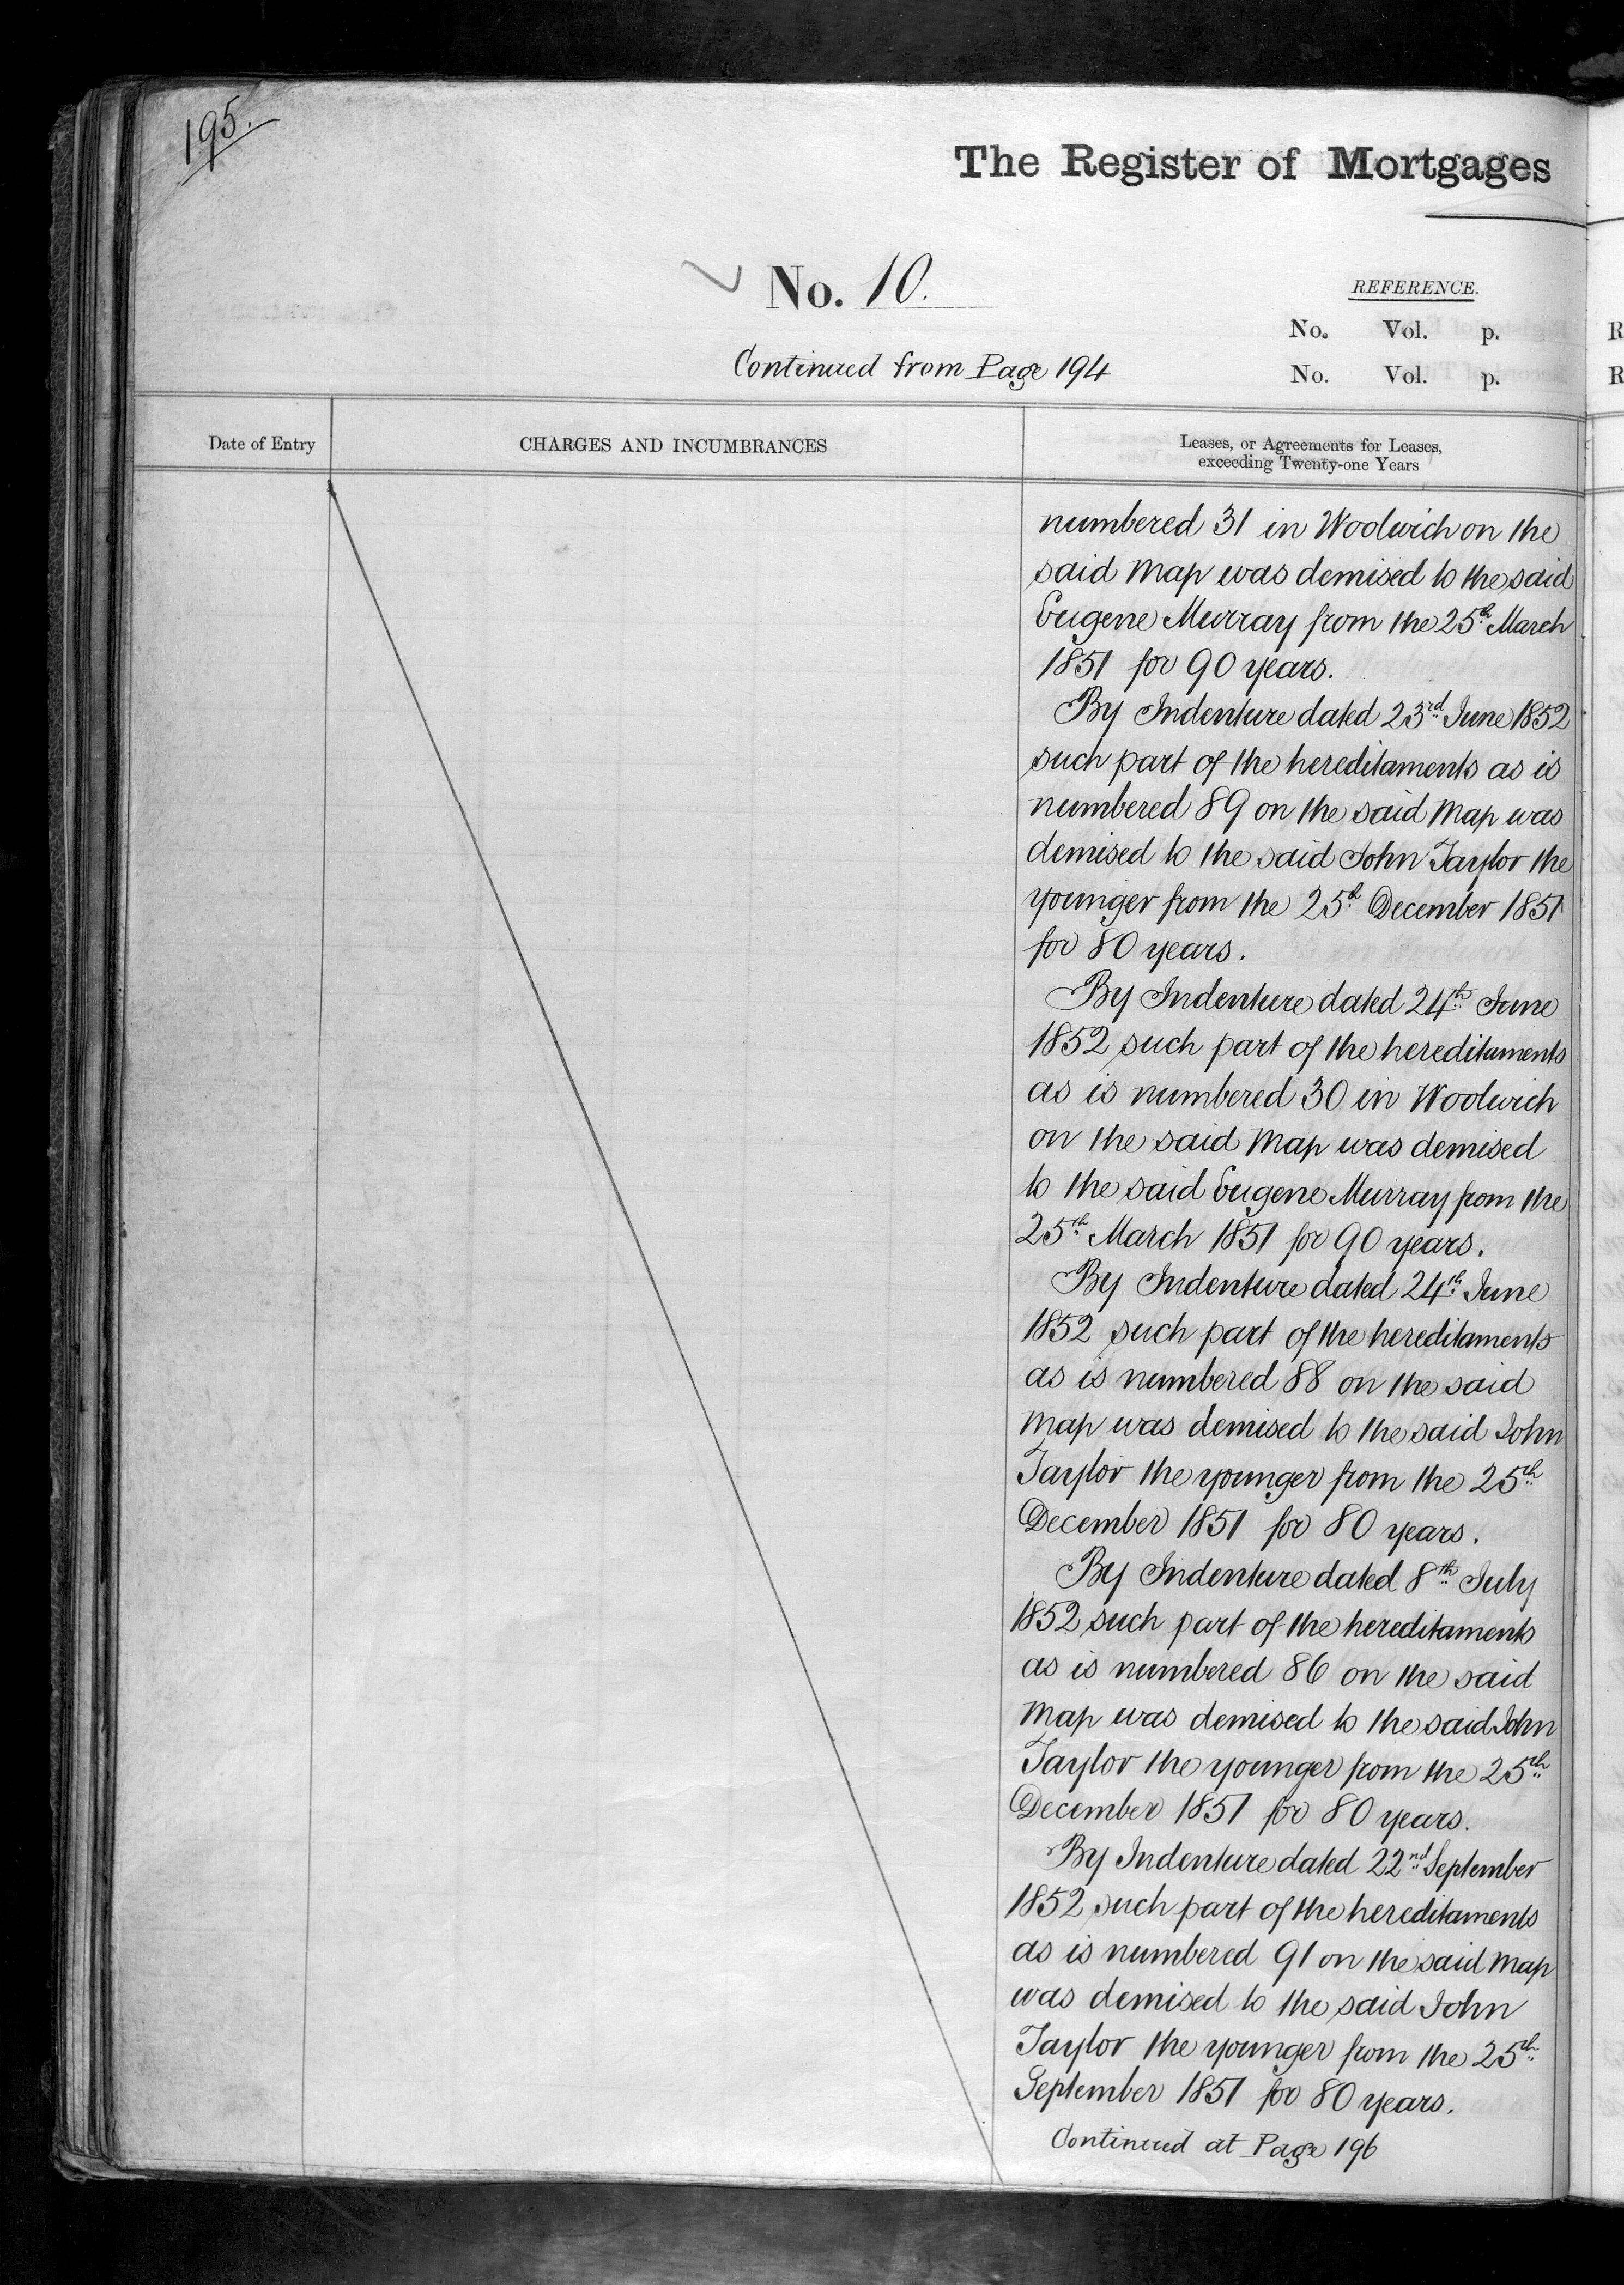 195.
The Register of Mortgages
No. 10.
REFERENCE.
No. Vol. p.
Continued from Page 194
No. Vol. p.
Date of Entry
CHARGES AND INCUMBRANCES
Leases, or Agreements for Leases,
exceeding Twenty-one Years
numbered 31 in Woolwich on the
said Map was demised to the said
Eugene Murray from the 25th March
1851 for 90 years.
By Indenture dated 23rd June 1852
such part of the hereditaments as is
numbered 89 on the said Map was
demised to the said John Taylor the
younger from the 25th December 1851
for 80 years.
By Indenture dated 24th June
1852 such part of the hereditaments
as is numbered 30 in Woolwich
on the said Map was demised
to the said Eugene Murray from the
25th March 1851 for 90 years.
By Indenture dated 24th June
1852 such part of the hereditaments
as is numbered 88 on the said
Map was demised to the said John
Taylor the younger from the 25th
December 1851 for 80 years.
By Indenture dated 8th July
1852 such part of the hereditaments
as is numbered 86 on the said
Map was demised to the said John
Taylor the younger from the 25th
December 1851 for 80 years.
By Indenture dated 22nd September
1852 such part of the hereditaments
as is numbered 91 on the said Map
was demised to the said John
Taylor the younger from the 25th
September 1851 for 80 years.
Continued at Page 196